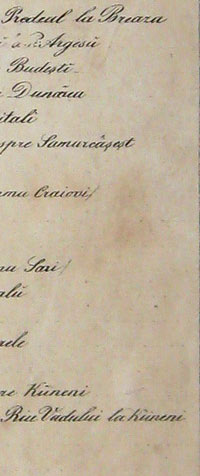 Predeal la Breaza
a Argesŭ
Budestĭ
Dunărea
italĭ
spre Samurcăsestĭ
Craiovĭ
Sari
alŭ
rele
re Kŭneni
Riu Vadului la Kŭneni